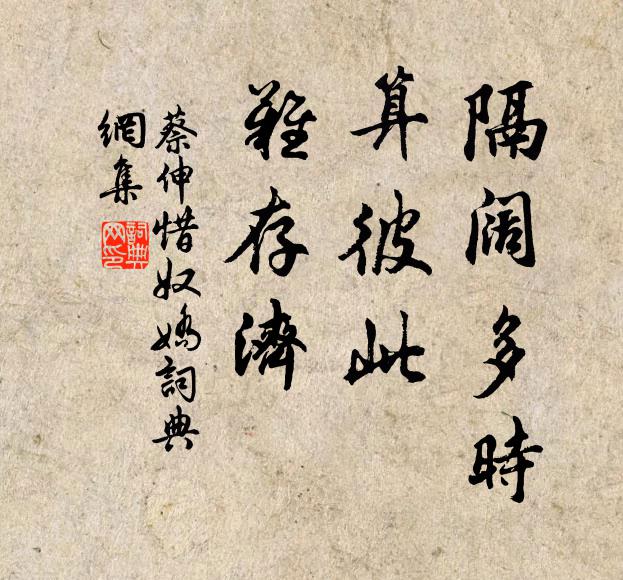 隔阔多時
算彼此
難存濟
蔡伸惜奴嬌詞典
網集
詞典
网印